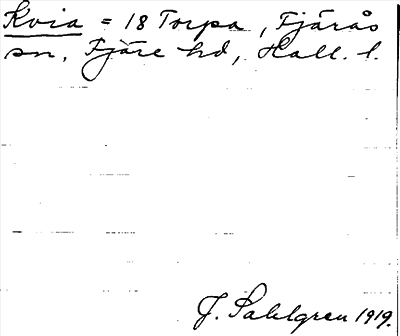 Kvia = 18 Torpa, Fjärås
sn, Fjäre hd, Hall. l.
J. Sahlgren 1919.